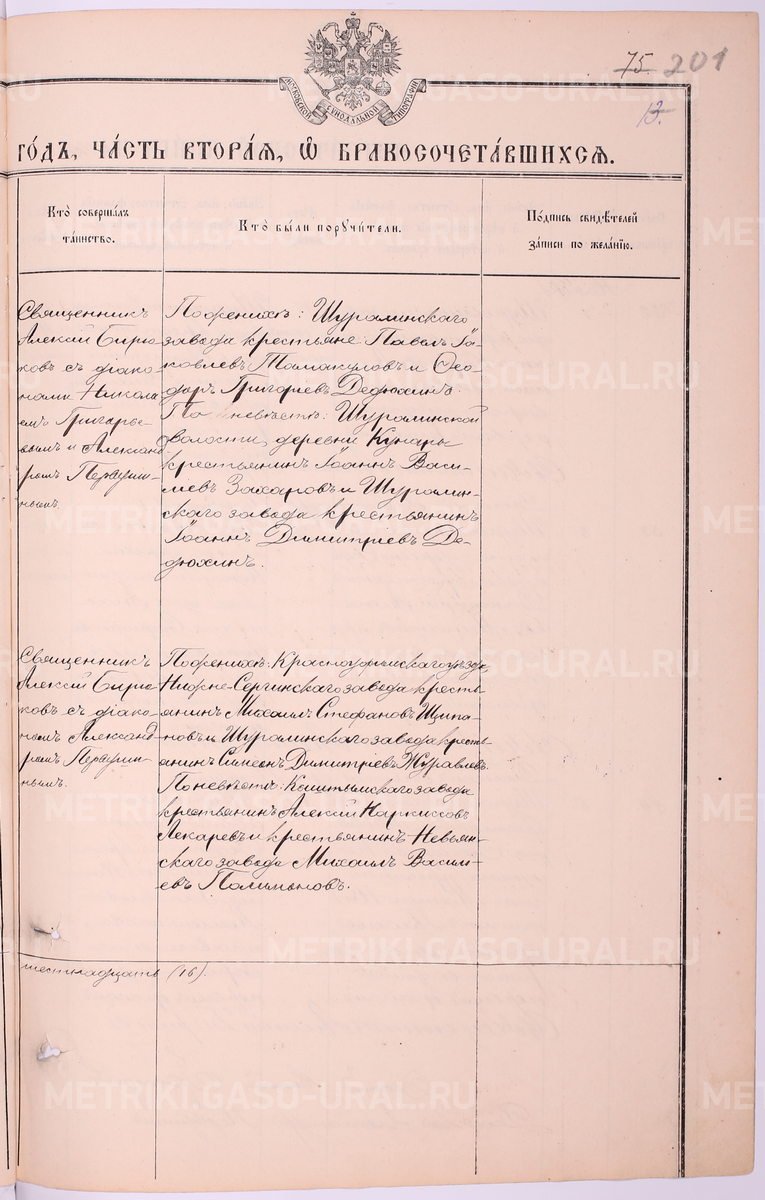 75. 201
13.
МОСКОВСКОЙ СѴНОДАЛЬНОЙ ТИПОГРАФІИ
го́дъ, ча́сть втора́я, ѽ бракосочета́вшихся.
Кто̀ соверша́лъ
та́инство.
Кто̀ бы́ли порꙋчи́тели.
По́дпись свидѣ́телей
за́писи по жела́нїю.
Священникъ
Алексій Бирю-
ковъ съ діако-
нами Никола-
емъ Григорье-
вымъ и Александ-
ромъ Первуши-
нымъ.
По женихѣ: Шуралинскаго
завода крестьяне Павелъ Іа-
ковлевъ Тамакуловъ и Ѳео-
доръ Григоріевъ Дедюхинъ.
По невѣстѣ: Шуралинской
волости, деревни Кунары
крестьянинъ Іоаннъ Васи-
льевъ Захаровъ и Шуралин-
скаго завода крестьянинъ
Іоаннъ Димитріевъ Де-
дюхинъ.
Священникъ
Алексій Бирю-
ковъ съ діако-
номъ Александ-
ромъ Первуши-
нымъ.
По женихѣ: Красноуфимскаго уѣзда,
Нижне-Сергинскаго завода кресть-
янинъ Михаилъ Стефановъ Щипа-
новъ и Шуралинскаго завода кресть-
янинъ Симеонъ Димитріевъ Журавлевъ.
По невѣстѣ: Кыштымскаго завода
крестьянинъ Алексій Наркиссовъ
Лекаревъ и крестьянинъ Невьян-
скаго завода Михаилъ Василь-
евъ
шестнадцать (16).
METRIKI.GASO-URAL.RU